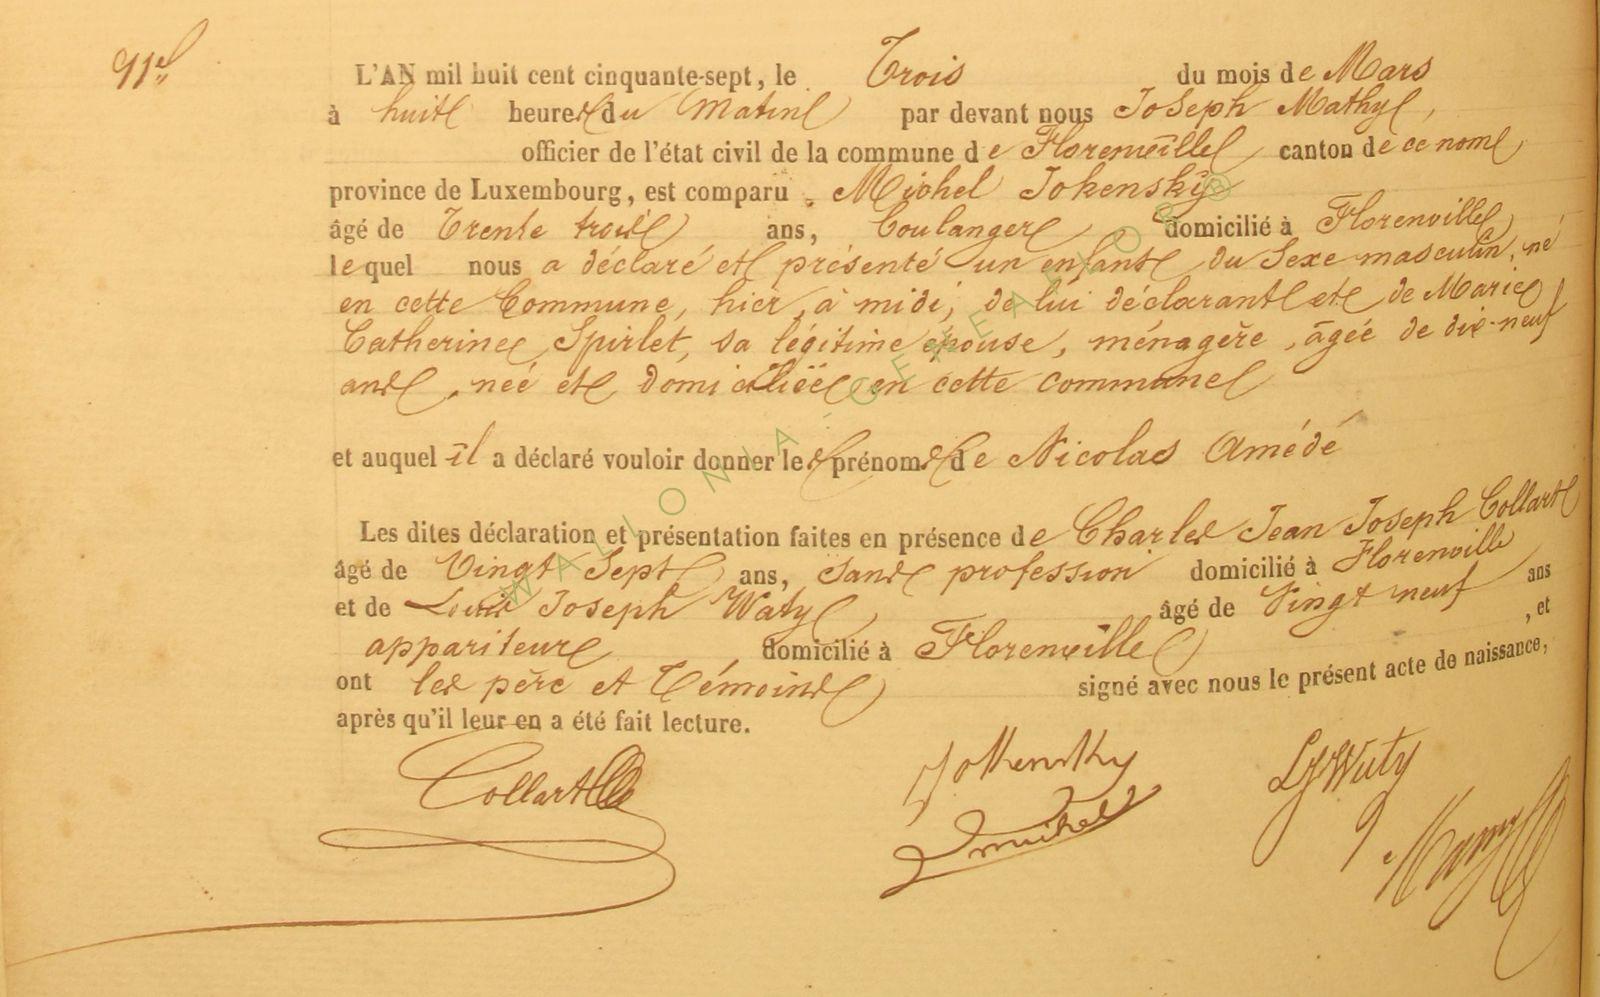 L'AN mil huit cent cinquante-sept, le Trois du mois de Mars
à huit heures du Matin par devant nous Joseph Mathy,
officier de l'état civil de la commune de Florenville canton de ce nom
province de Luxembourg, est comparu Michel Jokensky
âgé de Trente trois ans, boulanger domicilié à Florenville
lequel nous a déclaré et présenté un enfant du Sexe masculin, né
en cette Commune, hier, à midi, de lui déclarant et de Marie
Catherine Spirlet, sa légitime épouse, ménagère, âgée de dix-neuf
ans, née et domiciliée en cette commune
et auquel il a déclaré vouloir donner les prénoms de Nicolas Amédé
Les dites déclaration et présentation faites en présence de Charles Jean Joseph Collart
âgé de Vingt Sept ans, sans profession domicilié à Florenville
et de Louis Joseph Waty âgé de Vingt neuf ans
appariteur domicilié à Florenville, et
ont les père et Témoins signé avec nous le présent acte de naissance,
après qu'il leur en a été fait lecture.
Collart Jokensky LJWaty
michel
WALLONIA-GENEALOR